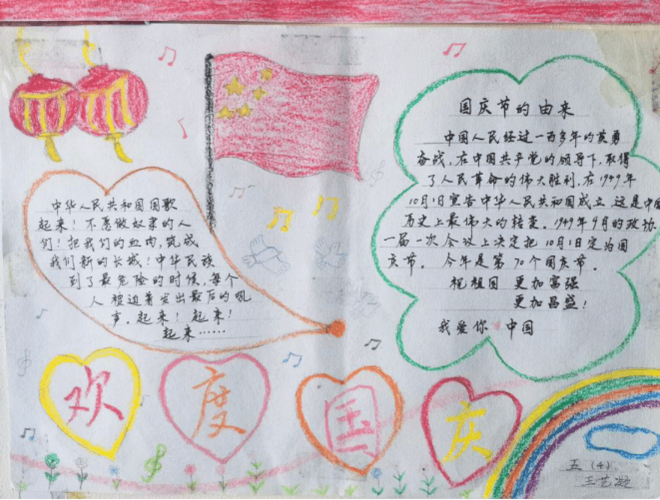 国庆节的由来
中国人民经过一百多年的英勇
奋战,在中国共产党的领导下,取得
了人民革命的伟大胜利,在1949年
10月1日宣告中华人民共和国成立,这是中国
历史上最伟大的转变。1949年9月的政协
一届一次会议上决定把10月1日定为国
庆节。今年是第70个国庆节。
祝祖国 更加富强
更加昌盛!
我爱你 中国
中华人民共和国国歌
起来!不愿做奴隶的人
们!把我们的血肉,筑成
我们新的长城!中华民族
到了最危险的时候,每个
人被迫着发出最后的吼
声。起来!起来!
起来……
欢度国庆
五(4)
王艺凝